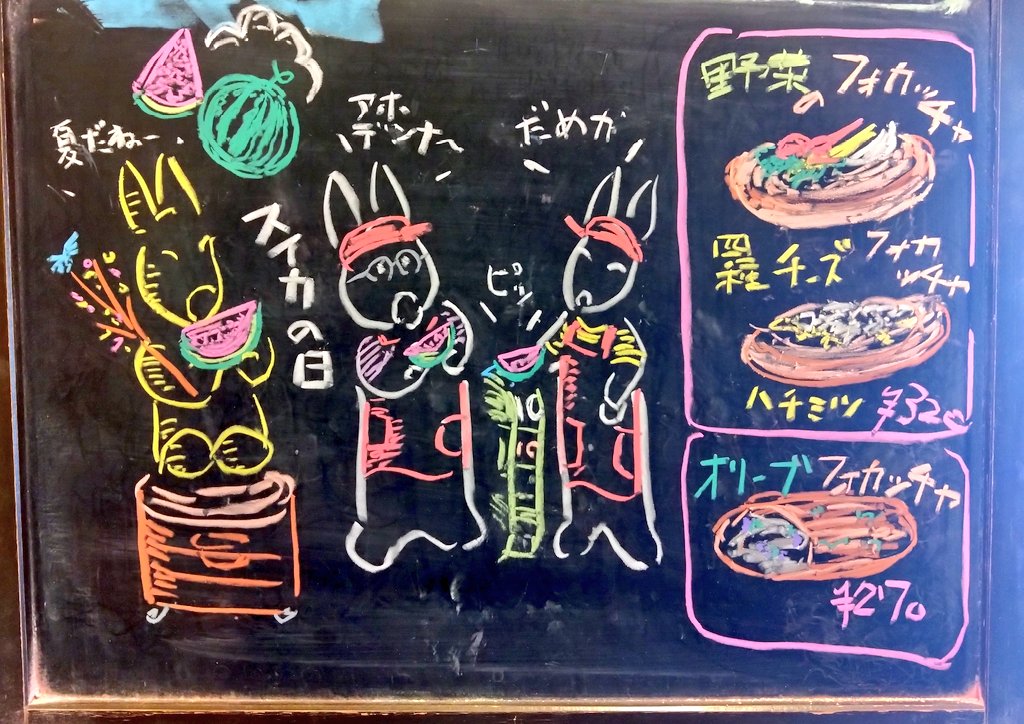 夏だねー
アホ
デンナー
だめか
スイカの日
ピッ
野菜
の
フォカッチャ
四種 チーズ
フォカッチャ
ハチミツ ¥320
オリーブ フォカッチャ
¥270